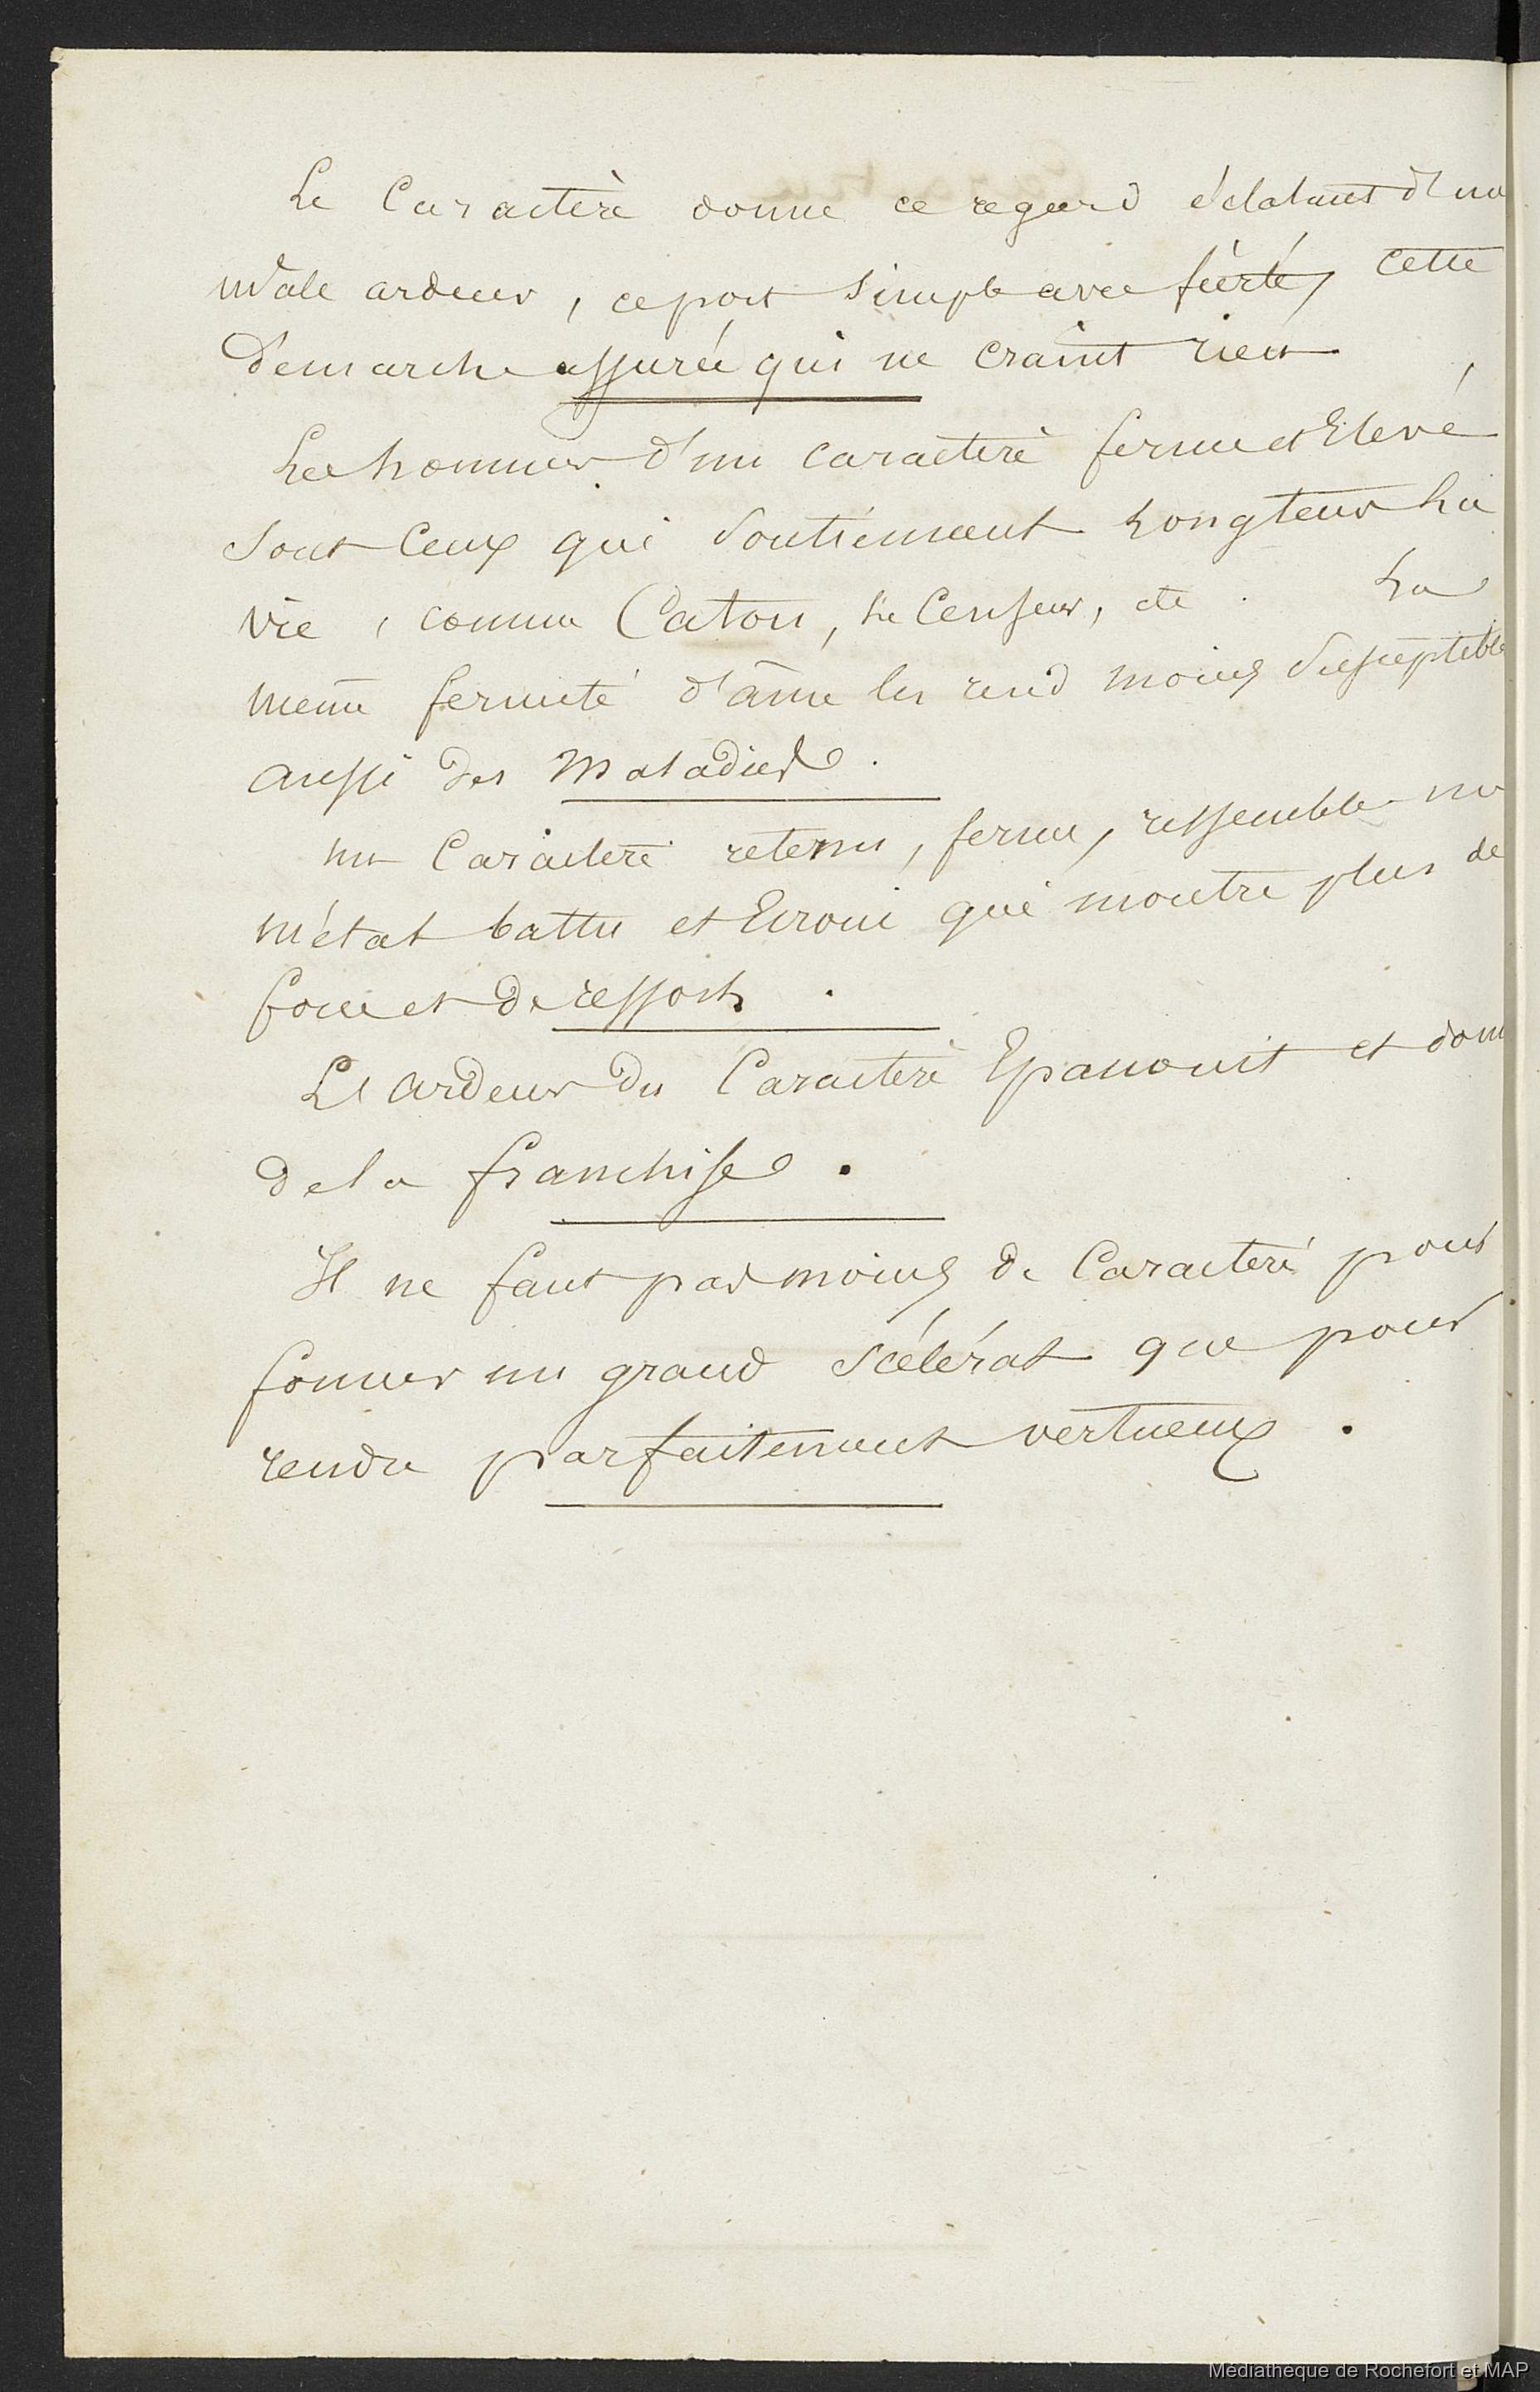 Le Caractère donne ce regard éclatant d'un
mâle ardeur, ce port simple avec fierté, cette
demarche assurée qui ne craint rien
Les hommes d'un caractere ferme et Elevé
sont Ceux qui soutiennent Longtems La
vie, comme Caton, Le Censeur, etc. La
même fermeté d'âme les rend moins susceptible
aussi des Maladies.
un Caractere retenu, ferme, ressemble un
métal battu et Ecroui qui montre plus de
force et de ressort.
L'ardeur du Caractere Epanouit et donn
de la franchise.
Il ne faut pas moins de Caractere pour
former un grand scélérat que pour
rendre parfaitement vertueux.
Médiathèque de Rochefort et MAP